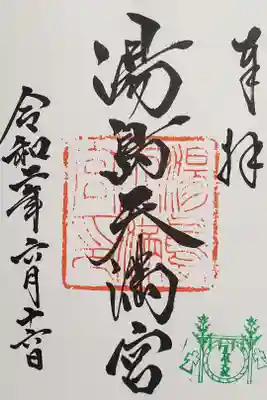 奉拝
湯島天満宮
令和二年六月十六日